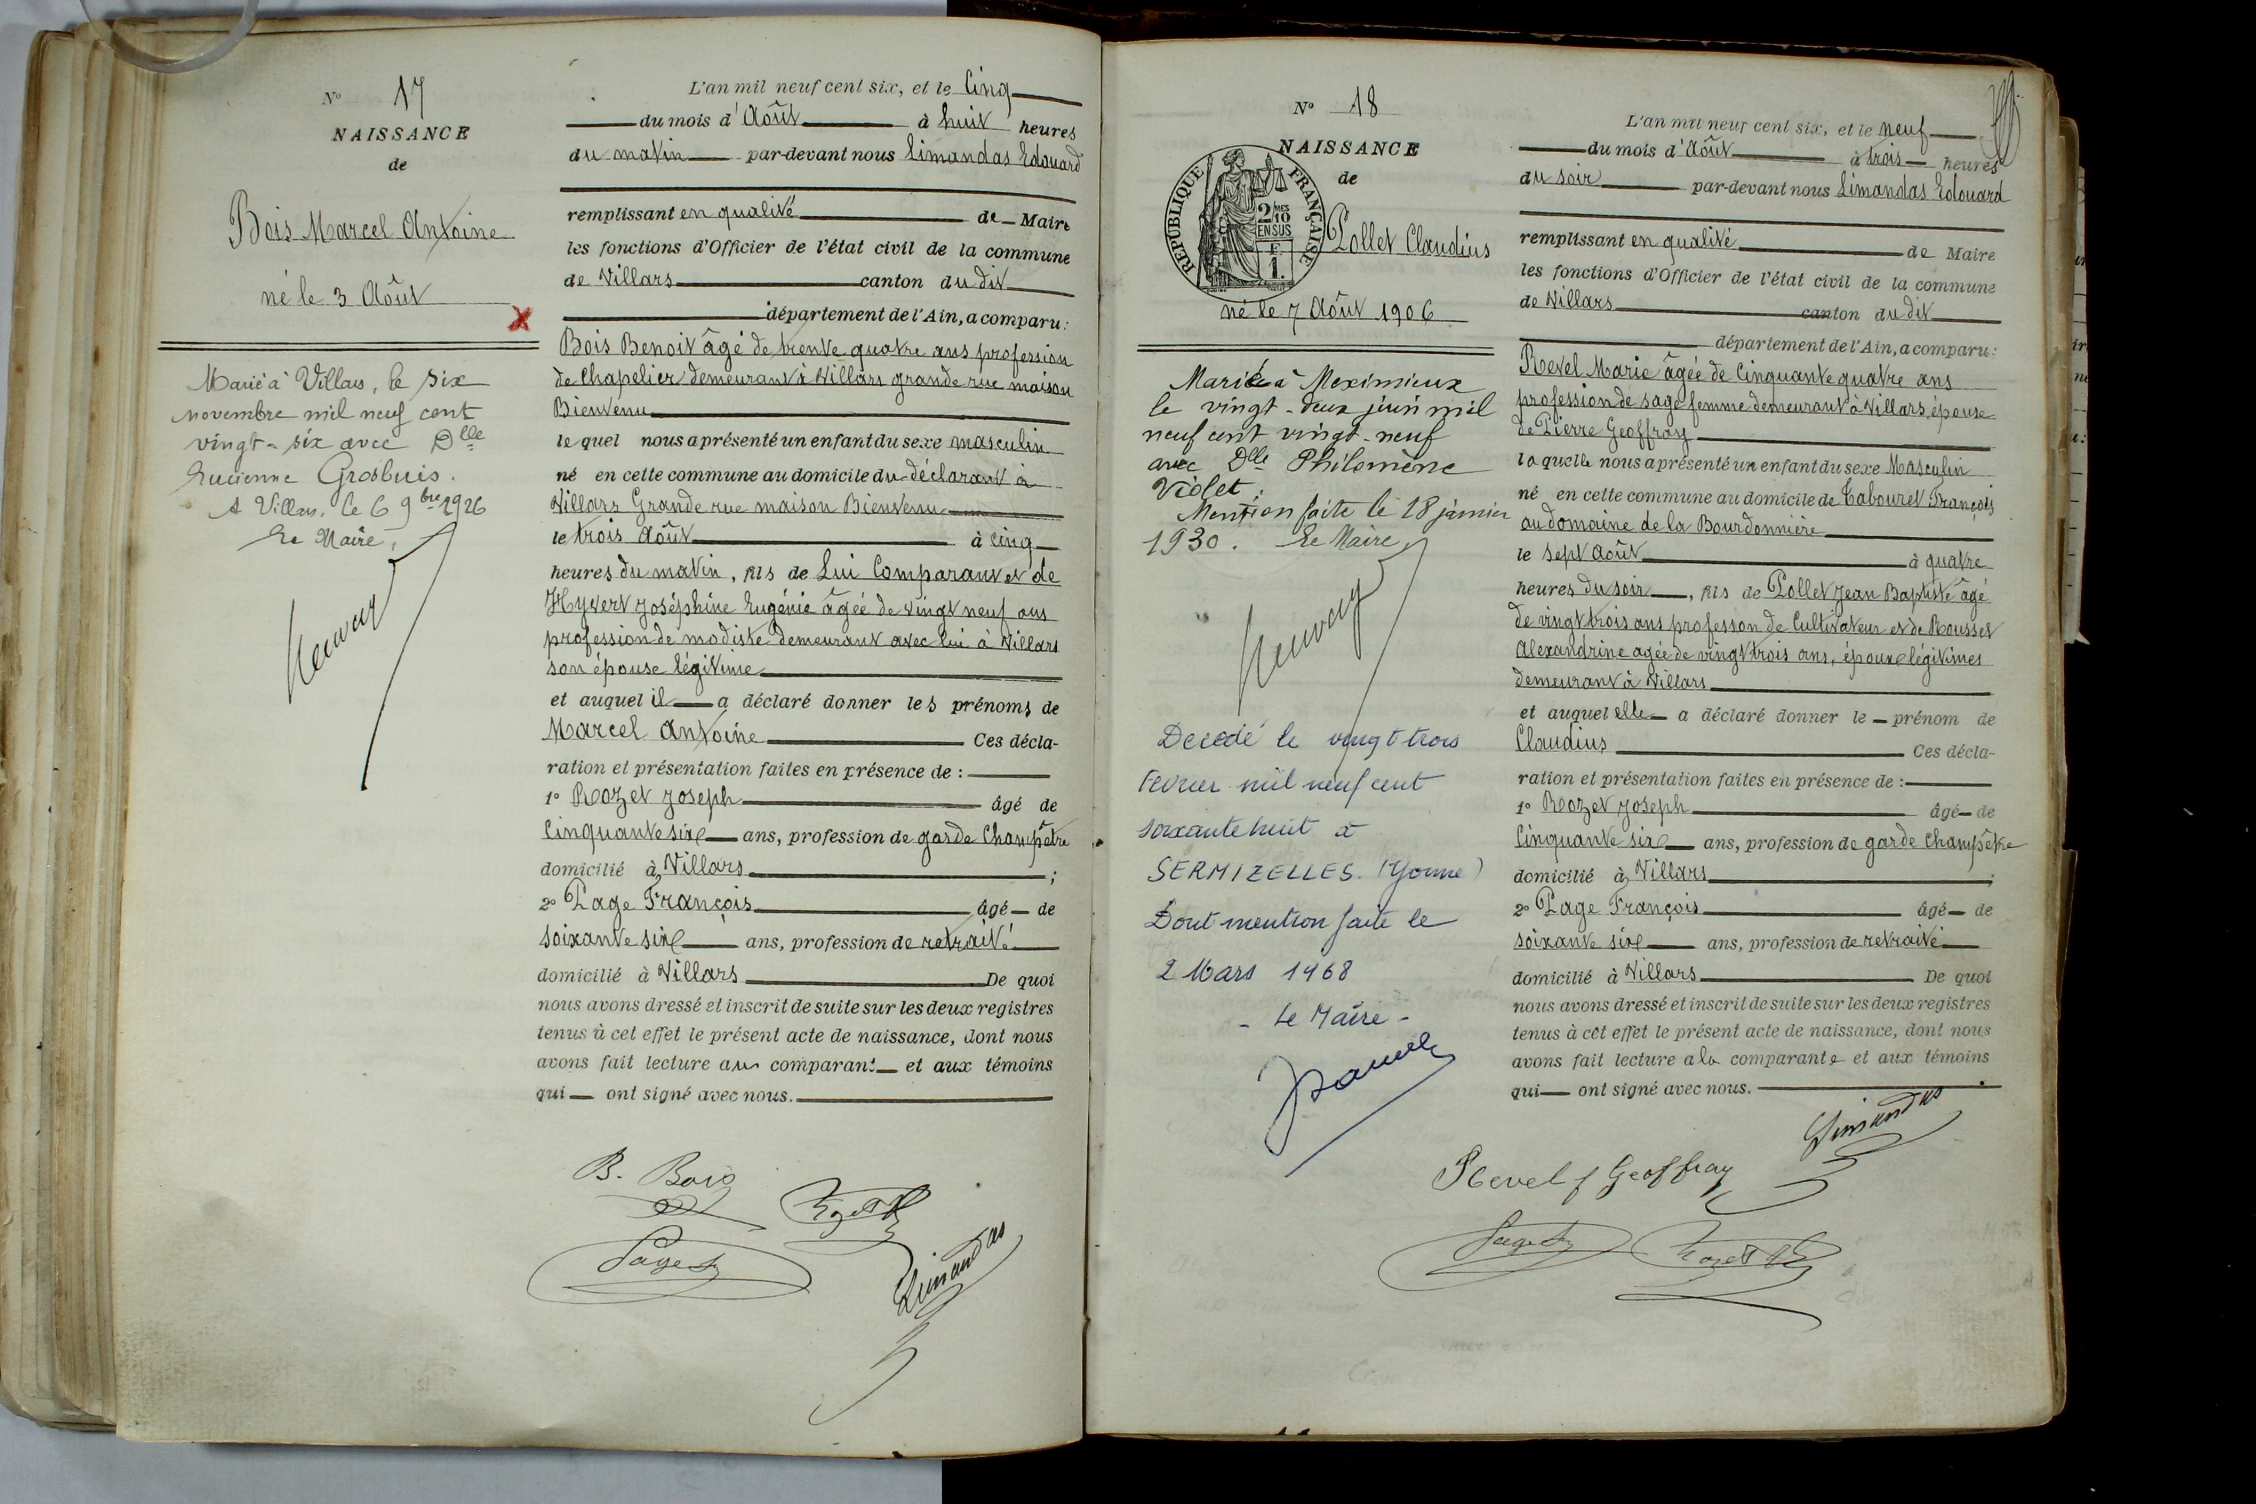 N° 17
NAISSANCE
de
Bois Marcel Antoine
né le 3 Août
X
Marié à Villars, le six
novembre mil neuf cent
vingt-six avec Dlle
Lucienne Grosbuis.
A Villars, le 6 9bre 1926
Le Maire,
L'an mil neuf cent six, et le Cinq
du mois d'Août à huit heures
du matin par-devant nous Limandas Edouard
remplissant en qualité de Maire
les fonctions d'Officier de l'état civil de la commune
de Villars canton du dit
département de l'Ain, a comparu :
Bois Benoit âgé de trente quatre ans profession
de Chapelier demeurant à Villars grande rue maison
Bienvenu
le quel nous a présenté un enfant du sexe masculin
né en cette commune au domicile du déclarant à
Villars Grande rue maison Bienvenu
le trois Août à cinq
heures du matin, fils de Lui Comparant et de
Hyvert Joséphine Eugénie âgée de vingt neuf ans
profession de modiste demeurant avec lui à Villars
son épouse légitime
et auquel il a déclaré donner les prénoms de
Marcel Antoine Ces décla-
ration et présentation faites en présence de :
1° Rozet Joseph âgé de
Cinquante six ans, profession de garde Champêtre
domicilié à Villars ;
2° Page François âgé de
soixante six ans, profession de retraité
domicilié à Villars De quoi
nous avons dressé et inscrit de suite sur les deux registres
tenus à cet effet le présent acte de naissance, dont nous
avons fait lecture au comparant et aux témoins
qui ont signé avec nous.
B. Bois
Rozet
Page
Limandas
N° 18
NAISSANCE
de
RÉPUBLIQUE FRANÇAISE
2 MES
10
EN SUS
F
1.
Pollet Claudius
né le 7 Août 1906
Marié à Meximieux
le vingt-deux juin mil
neuf cent vingt-neuf
avec Dlle Philomène
Violet.
Mention faite le 18 janvier
1930. Le Maire,
Decedé le vingt trois
Fevrier mil neuf cent
soixante huit à
SERMIZELLES. (Yonne)
Dont mention faite le
2 Mars 1968
- Le Maire -
L'an mil neuf cent six, et le neuf
du mois d'Août à trois heures
du soir par-devant nous Limandas Edouard
remplissant en qualité de Maire
les fonctions d'Officier de l'état civil de la commune
de Villars canton du dit
département de l'Ain, a comparu :
Revel Marie âgée de Cinquante quatre ans
profession de sage femme demeurant à Villars, épouse
de Pierre Geoffray
laquelle nous a présenté un enfant du sexe Masculin
né en cette commune au domicile de Tabouret François
au domaine de la Bourdonnière
le sept Août à quatre
heures du soir, fils de Pollet Jean Baptiste âgé
de vingt trois ans professon de Cultivateur et de Rousset
Alexandrine agée de vingt trois ans, époux légitimes
demeurant à Villars
et auquel elle a déclaré donner le prénom de
Claudius Ces décla-
ration et présentation faites en présence de :
1° Rozet Joseph âgé de
Cinquante six ans, profession de garde Champêtre
domicilié à Villars ;
2° Page François âgé de
soixante six ans, profession de retraité
domicilié à Villars De quoi
nous avons dressé et inscrit de suite sur les deux registres
tenus à cet effet le présent acte de naissance, dont nous
avons fait lecture a la comparante et aux témoins
qui ont signé avec nous.
Limandas
Revel f Geoffray
Page
Rozet